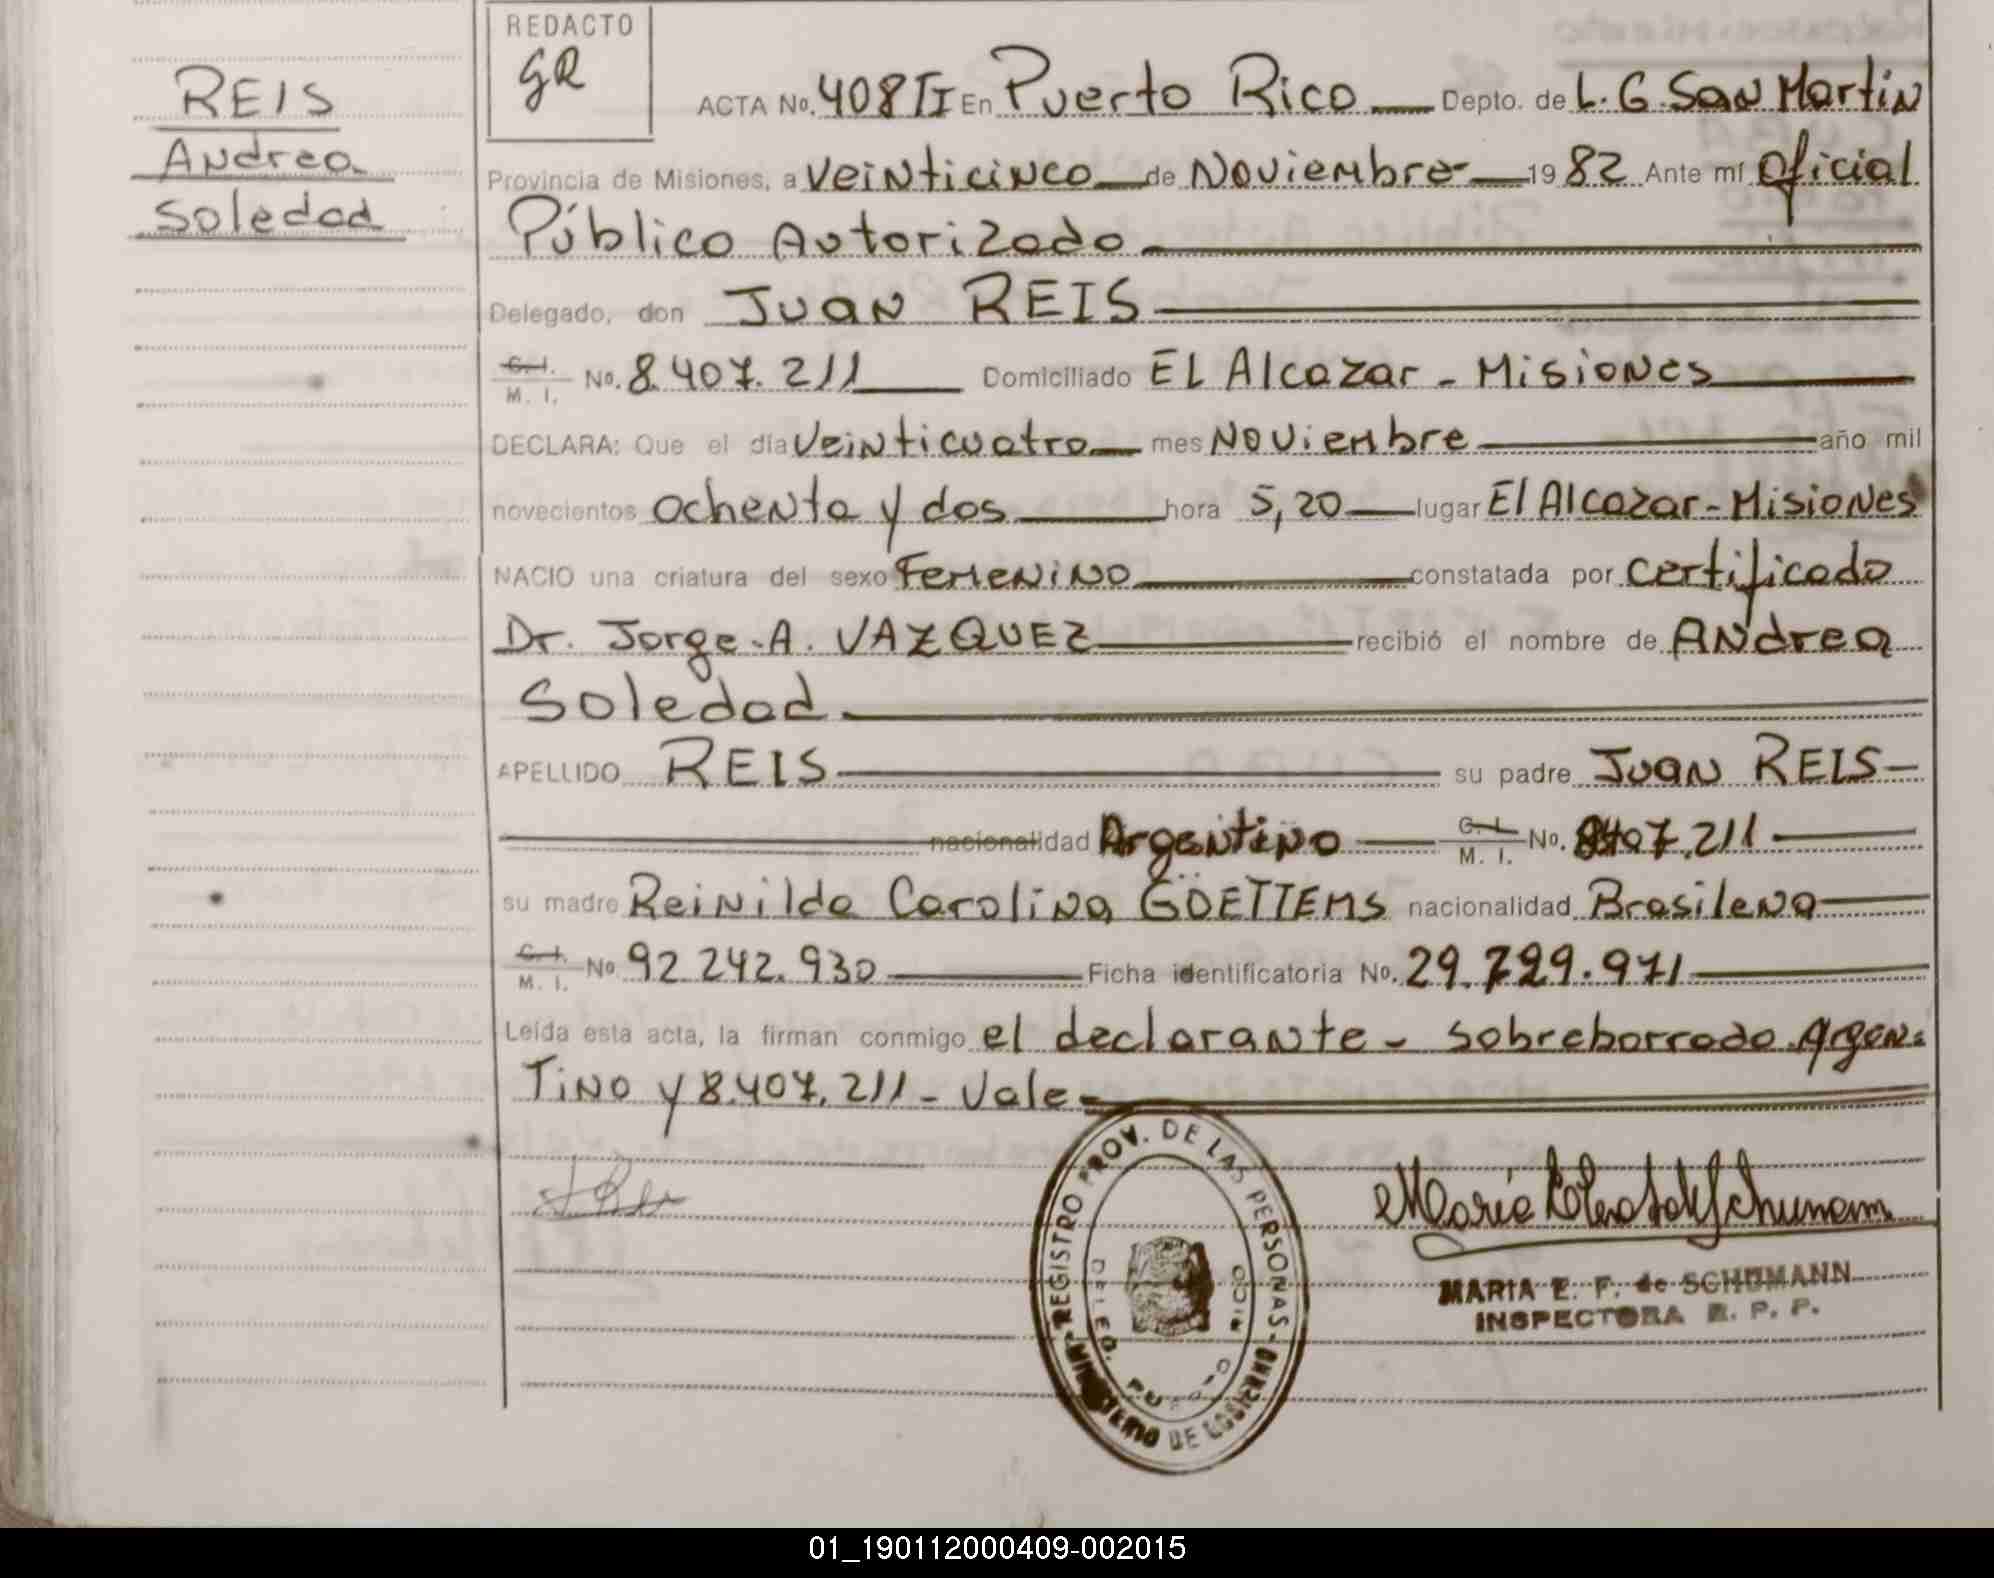 REIS
Andrea
Soledad
REDACTO
GR
ACTA No. 408 TI En Puerto Rico Depto. de L. G. San Martin
Provincia de Misiones, a Veinticinco de Noviembre 1982 Ante mí Oficial
Público Autorizado
Delegado, don Juan REIS
C. I.
M. I. No. 8.407.211 Domiciliado El Alcazar - Misiones
DECLARA: Que el día Veinticuatro mes Noviembre año mil
novecientos ochenta y dos hora 5,20 lugar El Alcazar - Misiones
NACIO una criatura del sexo Femenino constatada por certificado
Dr. Jorge A. VAZQUEZ recibió el nombre de Andrea
Soledad
APELLIDO REIS su padre Juan REIS
nacionalidad Argentino C. I. M. I. No. 8407.211
su madre Reinilda Carolina GÖETTEMS nacionalidad Brasilena
C. I.
M. I. No 92 242.930 Ficha identificatoria No. 29.729.971
Leída esta acta, la firman conmigo el declarante - Sobreborrado Argen=
Tino y 8.407.211 - Vale
REGISTRO PROV. DE LAS PERSONAS
MARIA E. F. de SCHUMANN
INSPECTORA R. P. P.
01_190112000409-002015